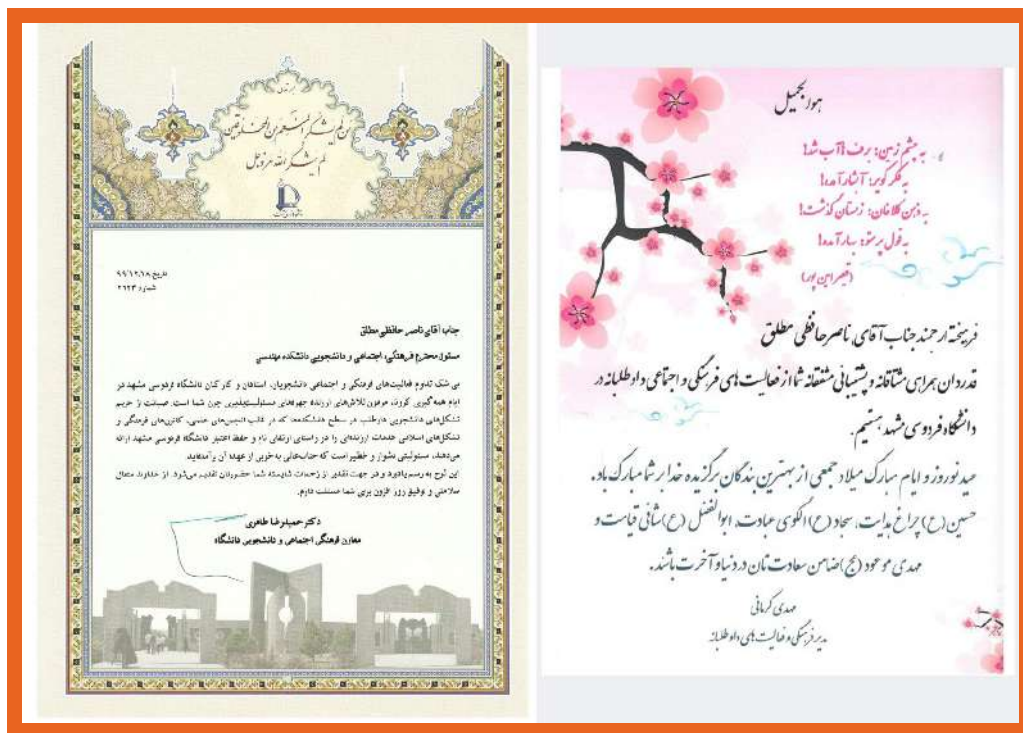 من لم یشکر المنعم من المخلوقین
لم یشکر الله عز و جل
تاریخ ۹۹/۱۲/۱۸
شماره ۲۶۲۳
جناب آقای ناصر حافظی مطلق
مسئول محترم فرهنگی، اجتماعی و دانشجویی دانشکده مهندسی
بی شک تداوم فعالیت‌های فرهنگی و اجتماعی دانشجویان، استادان و کارکنان دانشگاه فردوسی مشهد در
ایام همه گیری کرونا، مرهون تلاش‌های ارزنده چهره‌های مسئولیت‌پذیری چون شما است. صیانت از حریم
تشکل‌های دانشجویی داوطلب در سطح دانشکده‌ها که در قالب انجمن‌های علمی، کانون‌های فرهنگی و
تشکل‌های اسلامی خدمات ارزنده‌ای را در راستای ارتقای نام و حفظ اعتبار دانشگاه فردوسی مشهد ارائه
می‌دهند، مسئولیتی دشوار و خطیر است که جنابعالی به خوبی از عهده آن برآمده‌اید.
این لوح به رسم یادبود و در جهت تقدیر از زحمات شایسته شما حضورتان تقدیم می‌شود. از خداوند متعال
سلامتی و توفیق روز افزون برای شما مسئلت دارم.
دکتر حمیدرضا طاهری
معاون فرهنگی اجتماعی و دانشجویی دانشگاه
هوالجمیل
به چشم زمین: برف ها آب شد!
به فکر کویر: آبشار آمد!
به ذهن کلاغان: زمستان گذشت!
به قول پرستو: بهار آمد!
(قیصر امین پور)
فرهیخته ارجمند جناب آقای ناصر حافظی مطلق
قدردان همراهی مشتاقانه و پشتیبانی مشفقانه شما از فعالیت های فرهنگی و اجتماعی داوطلبانه در
دانشگاه فردوسی مشهد هستیم.
عید نوروز و ایام مبارک میلاد جمعی از بهترین بندگان برگزیده خدا بر شما مبارک باد.
حسین (ع) چراغ هدایت، سجاد (ع) الگوی عبادت، ابوالفضل (ع) شافی قیامت و
مهدی موعود (عج) ضامن سعادت تان در دنیا و آخرت باشند.
مهدی کرمانی
مدیر فرهنگی و فعالیت های داوطلبانه